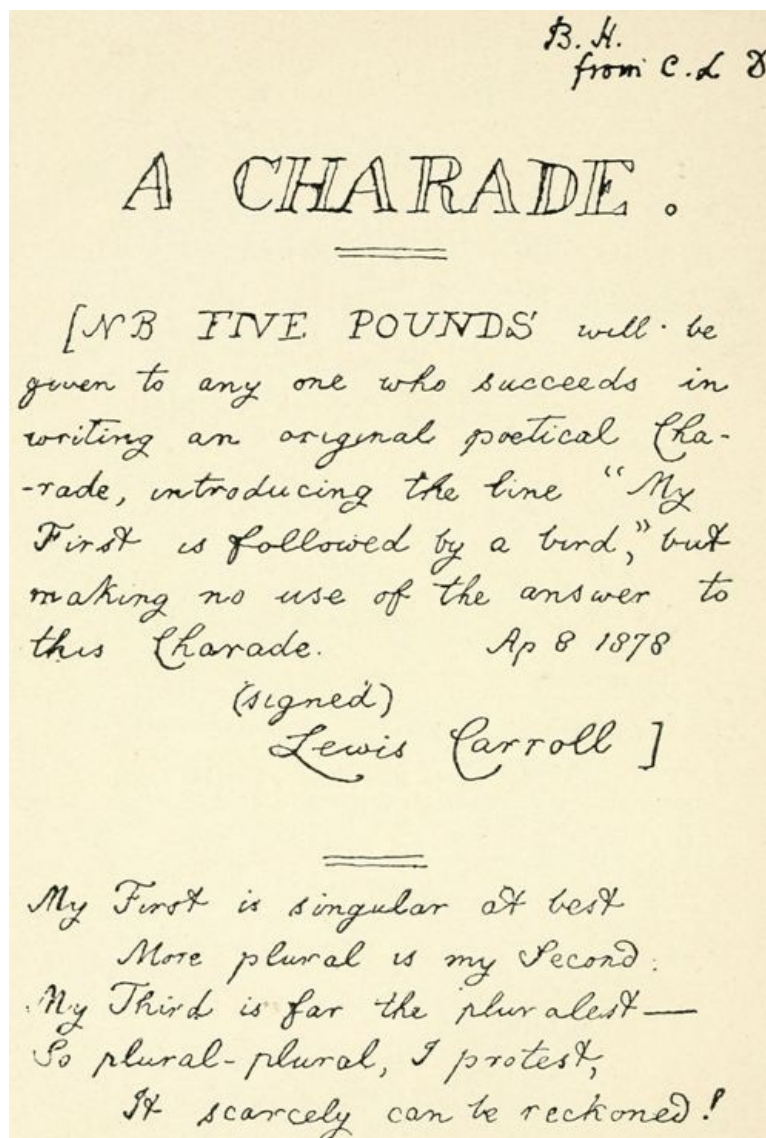 B. H.
from C. L D
A CHARADE.
[NB FIVE POUNDS will be
given to any one who succeeds in
writing an original poetical Cha-
-rade, introducing the line "My
First is followed by a bird," but
making no use of the answer to
this Charade. Ap 8 1878
(signed)
Lewis Carroll]
My First is singular at best
More plural is my Second:
My Third is far the pluralest—
So plural-plural, I protest,
It scarcely can be reckoned!